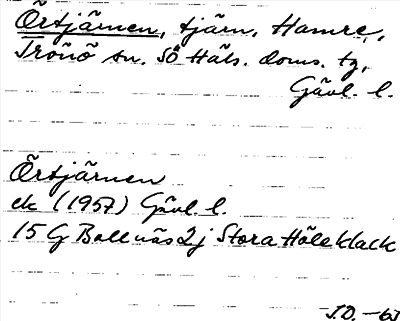 Örtjärnen, tjärn, Hamre,
Trönö sn. SÖ Häls. doms. tg,
Gävl. l.
Örtjärnen
ek (1957) Gävl. l.
15 G Bollnäs 2 j Stora Höleklack
J.D. -63